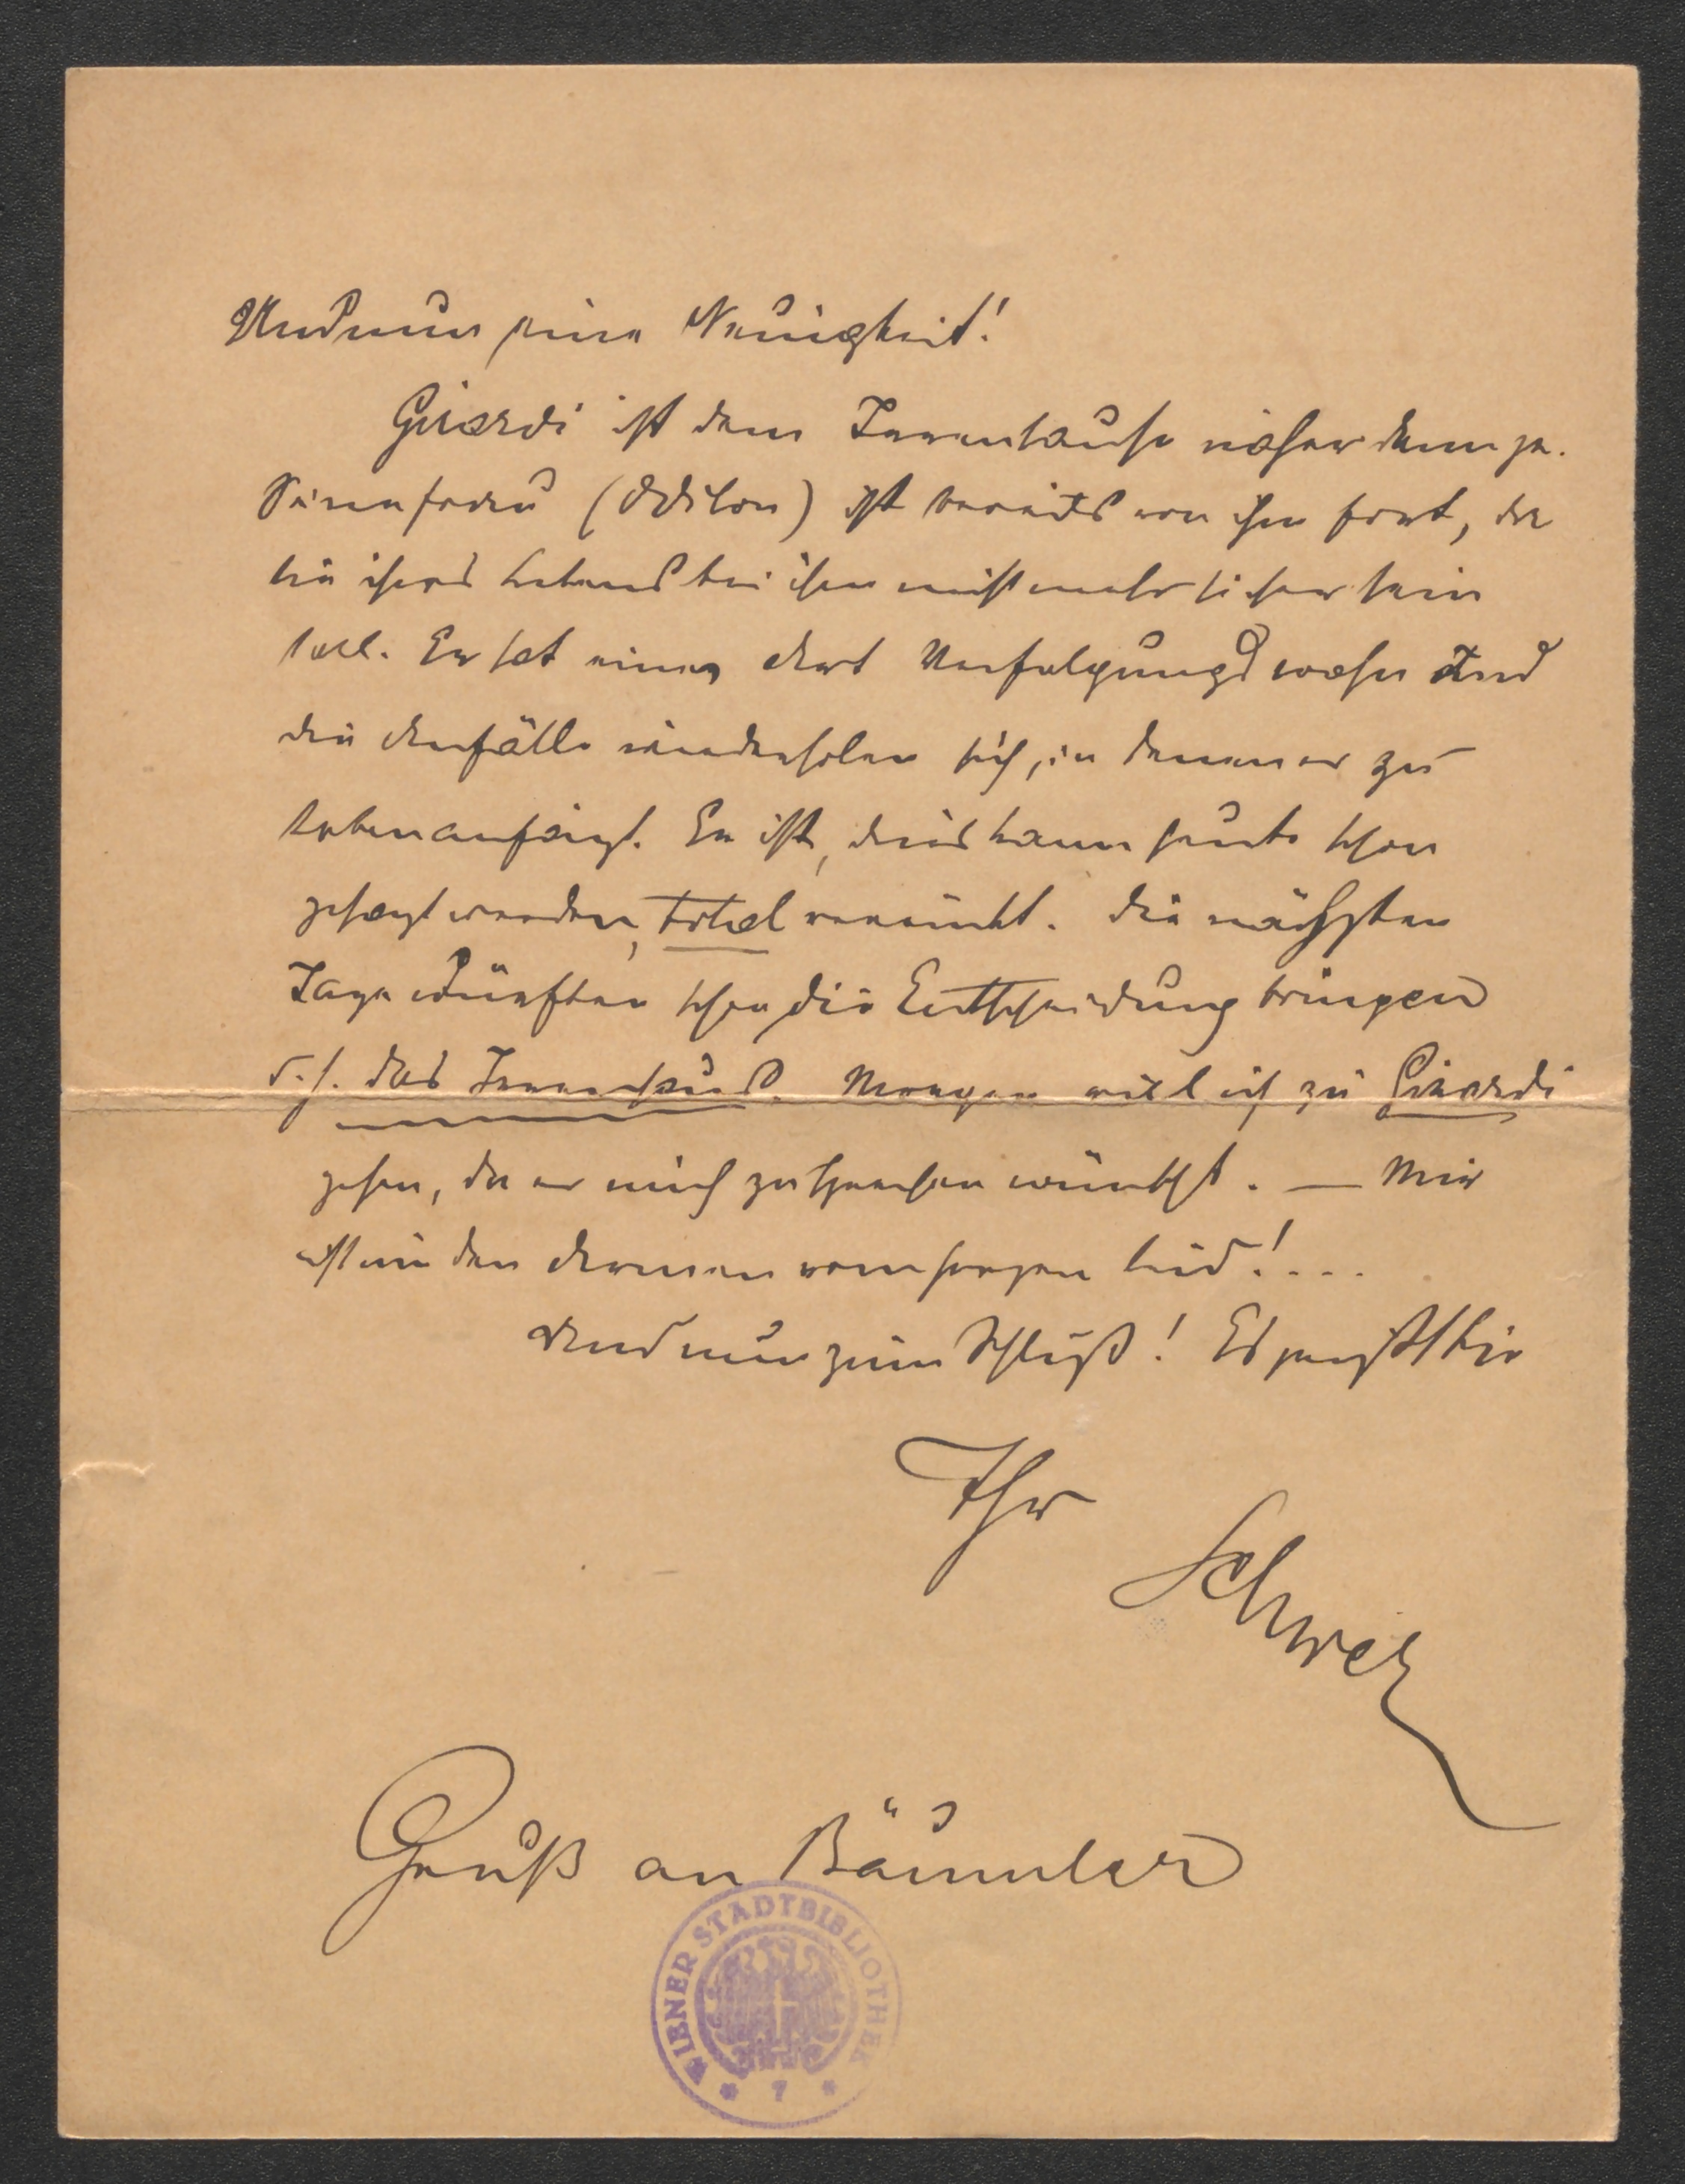 Und nun eine Neuigkeit!
Girardi ist dem Irrenhause näher denn je.
Seine Frau (Odilon) ist bereits von ihm fort, da
sie ihres Lebens bei ihm nicht mehr sicher sein
soll. Er hat eine Art Verfolgungswahn und
die Anfälle wiederholen sich, in denen er zu
toben anfängt. Er ist, dies kann heute schon
gesagt werden, total verrückt. Die nächsten
Tage dürften schon die Entscheidung bringen
d. h. das Irrenhaus. Morgen will ich zu Girardi
gehen, da er mich zu sprechen wünscht. — Mir
ist um den Armen vom Herzen leid!....
Und nun zum Schluß! Es grüßt Sie
Ihr
Gruß an Bäumler
WIENER STADTBIBLIOTHEK
* 7 *